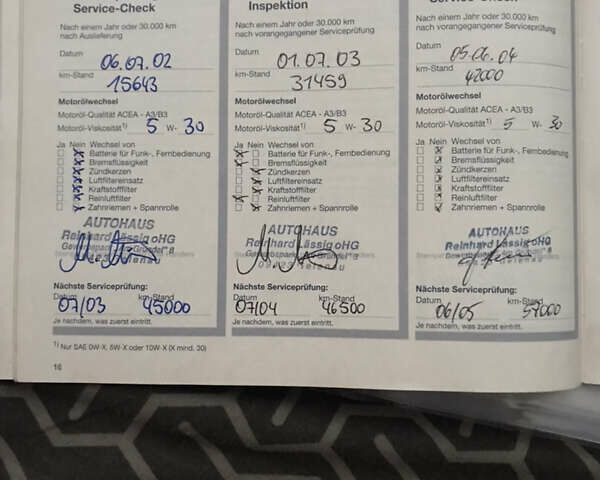 Service-Check
Nach einem Jahr oder 30.000 km
nach Auslieferung
Datum 06.07.02
km-Stand 15643
Motorölwechsel
Motoröl-Qualität ACEA - A3/B3
Motoröl-Viskosität1) 5 W- 30
Ja Nein Wechsel von
Batterie für Funk-, Fernbedienung
Bremsflüssigkeit
Zündkerzen
Luftfiltereinsatz
Kraftstofffilter
Reinluftfilter
Zahnriemen + Spannrolle
AUTOHAUS
Reinhard Lässig oHG
Nächste Serviceprüfung:
Datum 07/03 km-Stand 45000
Je nachdem, was zuerst eintritt.
Inspektion
Nach einem Jahr oder 30.000 km
nach vorangegangener Serviceprüfung
Datum 01.07.03
km-Stand 31459
Motorölwechsel
Motoröl-Qualität ACEA - A3/B3
Motoröl-Viskosität1) 5 W- 30
Ja Nein Wechsel von
Batterie für Funk-, Fernbedienung
Bremsflüssigkeit
Zündkerzen
Luftfiltereinsatz
Kraftstofffilter
Reinluftfilter
Zahnriemen + Spannrolle
AUTOHAUS
Reinhard Lässig oHG
Nächste Serviceprüfung:
Datum 07/04 km-Stand 46500
Je nachdem, was zuerst eintritt.
Service-Check
Nach einem Jahr oder 30.000 km
nach vorangegangener Serviceprüfung
Datum 05.06.04
km-Stand 42000
Motorölwechsel
Motoröl-Qualität ACEA - A3/B3
Motoröl-Viskosität1) 5 W- 30
Ja Nein Wechsel von
Batterie für Funk-, Fernbedienung
Bremsflüssigkeit
Zündkerzen
Luftfiltereinsatz
Kraftstofffilter
Reinluftfilter
Zahnriemen + Spannrolle
AUTOHAUS
Reinhard Lässig oHG
Nächste Serviceprüfung:
Datum 06/05 km-Stand 57000
Je nachdem, was zuerst eintritt.
1) Nur SAE 0W-X, 5W-X oder 10W-X (X mind. 30)
16